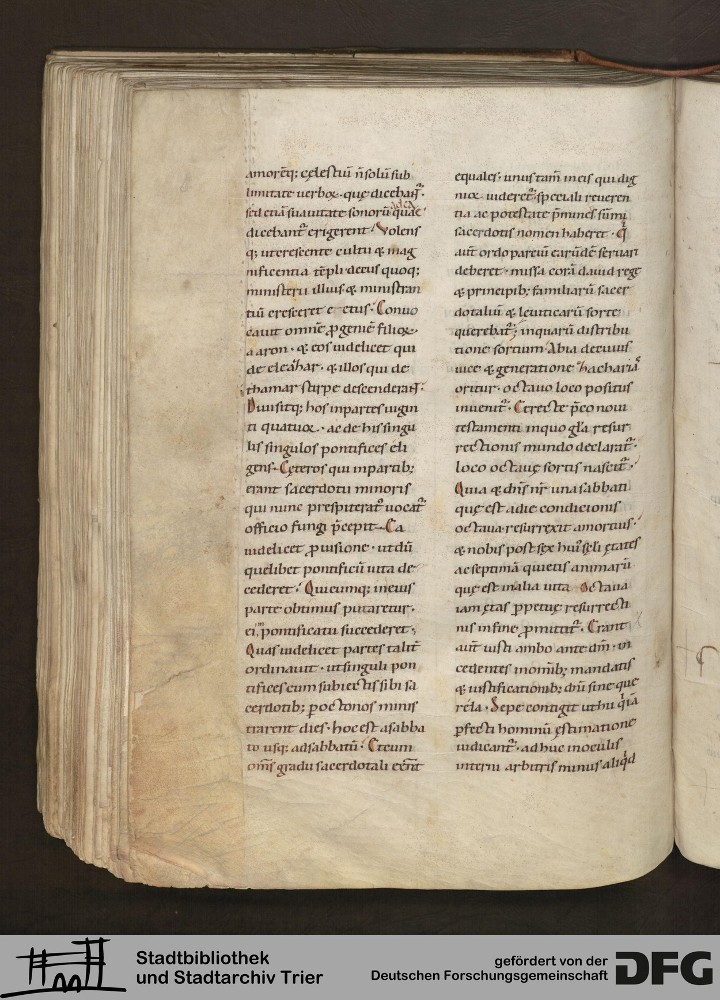 amorēq; cęlestiū n̄ solū sub
limitate verboꝝ· quę dicebant̄·
sed etiā suauitate sonorū quae
dicebant̄ erigerent· Volens
q; ut crescente cultu & mag
nificentia tēpli decus quoq;
ministerii illius & ministran
tiū cresceret cetus· Conuo
cauit omnē ꝓgeniē filioꝝ
aaron· & eos uidelicet qui
de eleazhar· & illos qui de
thamar stirpe descenderant̄·
Diuisitq; hos in partes uigin
ti quatuor· ac de his singu
lis singulos pontifices eli
gens· Cęteros qui in partib;
erant sacerdotii minoris
qui nunc prespiterat' uocat'
officio fungi p̄cepit· Ea
uidelicet ꝓuisione· ut dū
quęlibet pontificū uita de
cederet· Quicumq; in eius
parte obtimus putaretur·
ei in pontificatū succederet·
Quas uidelicet partes talit̄
ordinauit· ut singuli pon
tifices cum subiectis sibi sa
cerdotib; ꝑ octonos minis
trarent dies· hoc est a sabba
to usq; ad sabbatū· Et cum
om̄s gradu sacerdotali eēnt
equales· unus tam̄ in eis qui dig
nior uideret'· speciali reueren
tia ac potestate p̄minēs sūmi
sacerdotis nomen haberet· Q̄
aut̄ ordo pariū earūdē seruari
deberet· missa corā dauid rege
& principib; familiarū sacer
dotaliū & leuiticarū sorte
querebat'· in quarū distribu
tione sortium Abia decuius
uice & generatione Zhacharia
oritur· octauo loco positus
inuenit'· Et recte p̄co noui
testamenti in quo gła resur
rectionis mundo declarat'·
loco octauę sortis nascit'·
Quia & dn̄s nr̄ una sabbati
que est a die condicionis
octaua resurrexit a mortuis·
& nobis post sex hui' seli ętates
ac septimā quietis animarū
quę est in alia uita· Octaua
iam ętas ꝑpetuę resurrecti
nis in fine ꝓmittit'· Erant
aut̄ iusti ambo ante dm̄· in
cedentes in omīb; mandatis
& iustificationib; dn̄i sine que
rela· Sepe contigit ut hii q̄ ia
ꝑfecti hominū ęstimatione
iudicant'· adhuc in oculis
interni arbitris minus aliq̇d
Stadtbibliothek
und Stadtarchiv Trier
gefördert von der
Deutschen Forschungsgemeinschaft
DFG